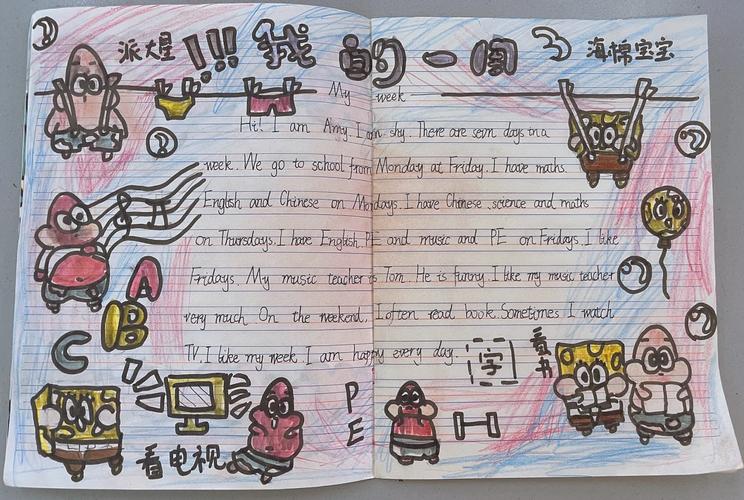 派大星 !!! 我的一周 海棉宝宝
My week
Hi! I am Amy. I am shy. There are sevn days in a
week. We go to school from Monday at Friday. I have maths.
English and Chinese on Mondays. I have Chinese, science and maths
on Thursdays. I have English, PE and music and PE on Fridays. I like
Fridays. My music teacher is Tom. He is funny. I like my music teacher
very much. On the weekend, I often read book. Sometimes I watch
TV. I like my week. I am happy every day.
A
B
C
字
看书
PE
看电视